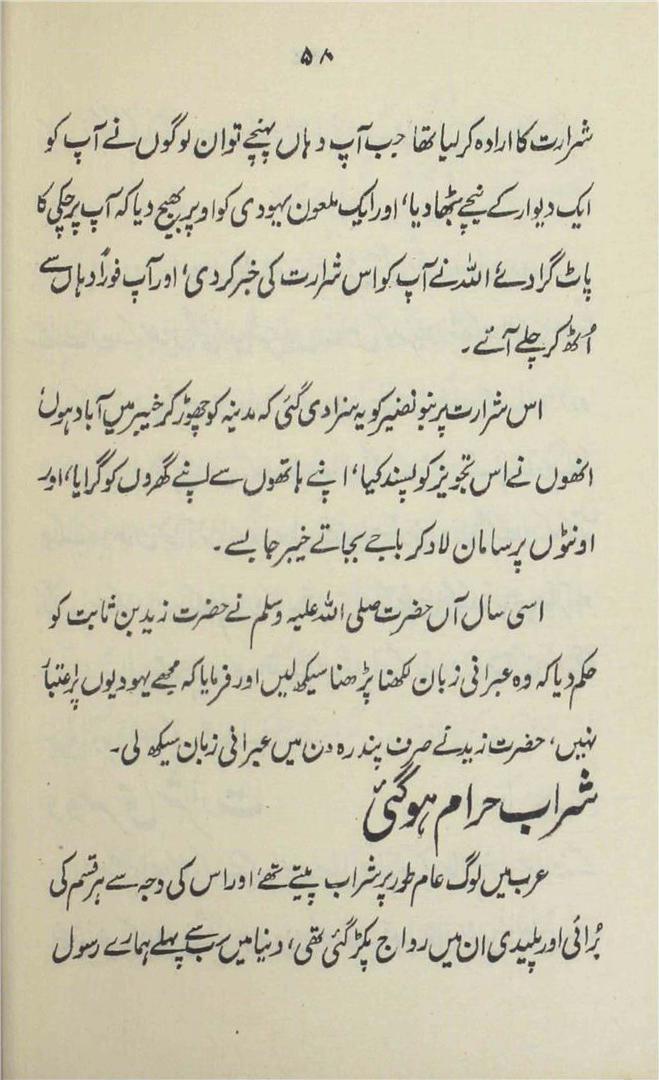 ۵۸
شرارت کا ارادہ کر لیا تھا جب آپ وہاں پہنچے تو ان لوگوں نے آپ کو
ایک دیوار کے نیچے بٹھا دیا، اور ایک ملعون یہودی کو اوپر بھیج دیا کہ آپ پر چکی کا
پاٹ گرا دے اللہ نے آپ کو اس شرارت کی خبر کر دی، اور آپ فوراً وہاں سے
اُٹھ کر چلے آئے۔
اس شرارت پر بنو نضیر کو یہ سزا دی گئی کہ مدینہ کو چھوڑ کر خیبر میں آباد ہوں،
انھوں نے اس تجویز کو پسند کیا، اپنے ہاتھوں سے اپنے گھروں کو گرایا، اور
اونٹوں پر سامان لاد کر باجے بجاتے خیبر جا بسے۔
اسی سال آں حضرت صلی اللہ علیہ وسلم نے حضرت زید بن ثابت کو
حکم دیا کہ وہ عبرانی زبان لکھنا پڑھنا سیکھ لیں اور فرمایا کہ مجھے یہودیوں پر اعتبار
نہیں، حضرت زید نے صرف پندرہ دن میں عبرانی زبان سیکھ لی۔
شراب حرام ہو گئی
عرب میں لوگ عام طور پر شراب پیتے تھے، اور اس کی وجہ سے ہر قسم کی
بُرائی اور پلیدی ان میں رواج پکڑ گئی تھی، دنیا میں سب سے پہلے ہمارے رسول